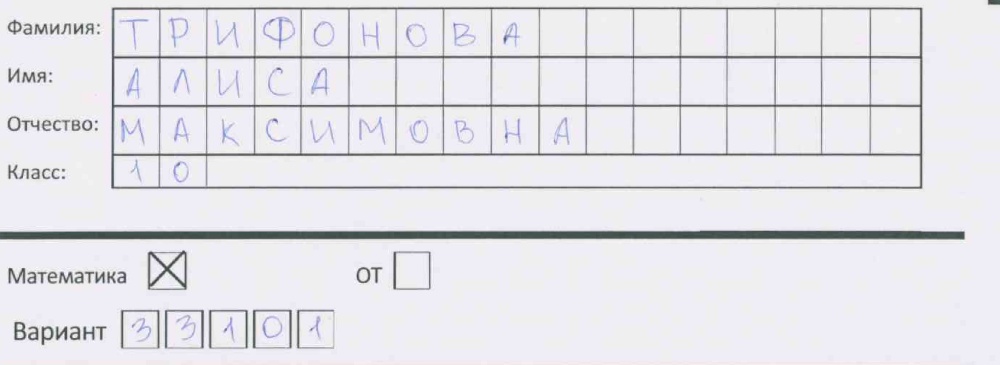 Фамилия: ТРИФОНОВА
Имя: АЛИСА
Отчество: МАКСИМОВНА
Класс: 10
Математика ОТ
Вариант 33101